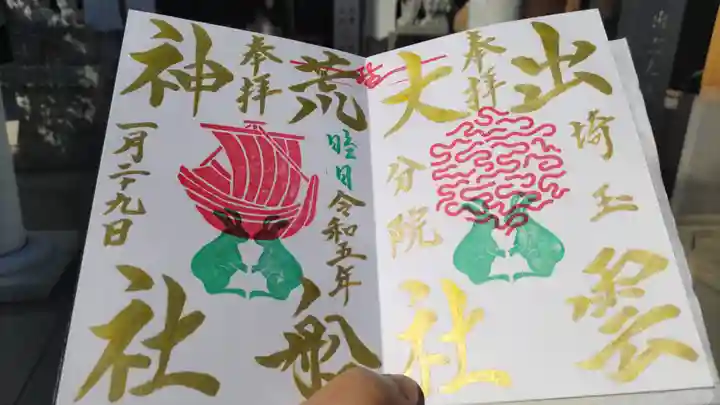 出雲
奉拝
埼玉
大社
分院
荒船
奉拝
睦日
令和五年
神社
一月二十九日